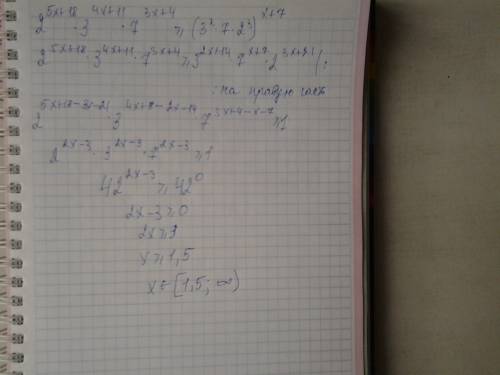 2^{5x+18} · 3^{4x+11} · 7^{3x+4} ⩾ (3² · 7 · 2³)^{x+7}
2^{5x+18} · 3^{4x+11} · 7^{3x+4} ⩾ 3^{2x+14} 7^{x+7} · 2^{3x+21} | :
: на правую часть
2^{5x+18-3x-21} · 3^{4x+11-2x-14} · 7^{3x+4-x-7} ⩾ 1
2^{2x-3} · 3^{2x-3} · 7^{2x-3} ⩾ 1
42^{2x-3} ⩾ 42^0
2x-3 ⩾ 0
2x ⩾ 3
x ⩾ 1,5
x ∈ [1,5; ∞)